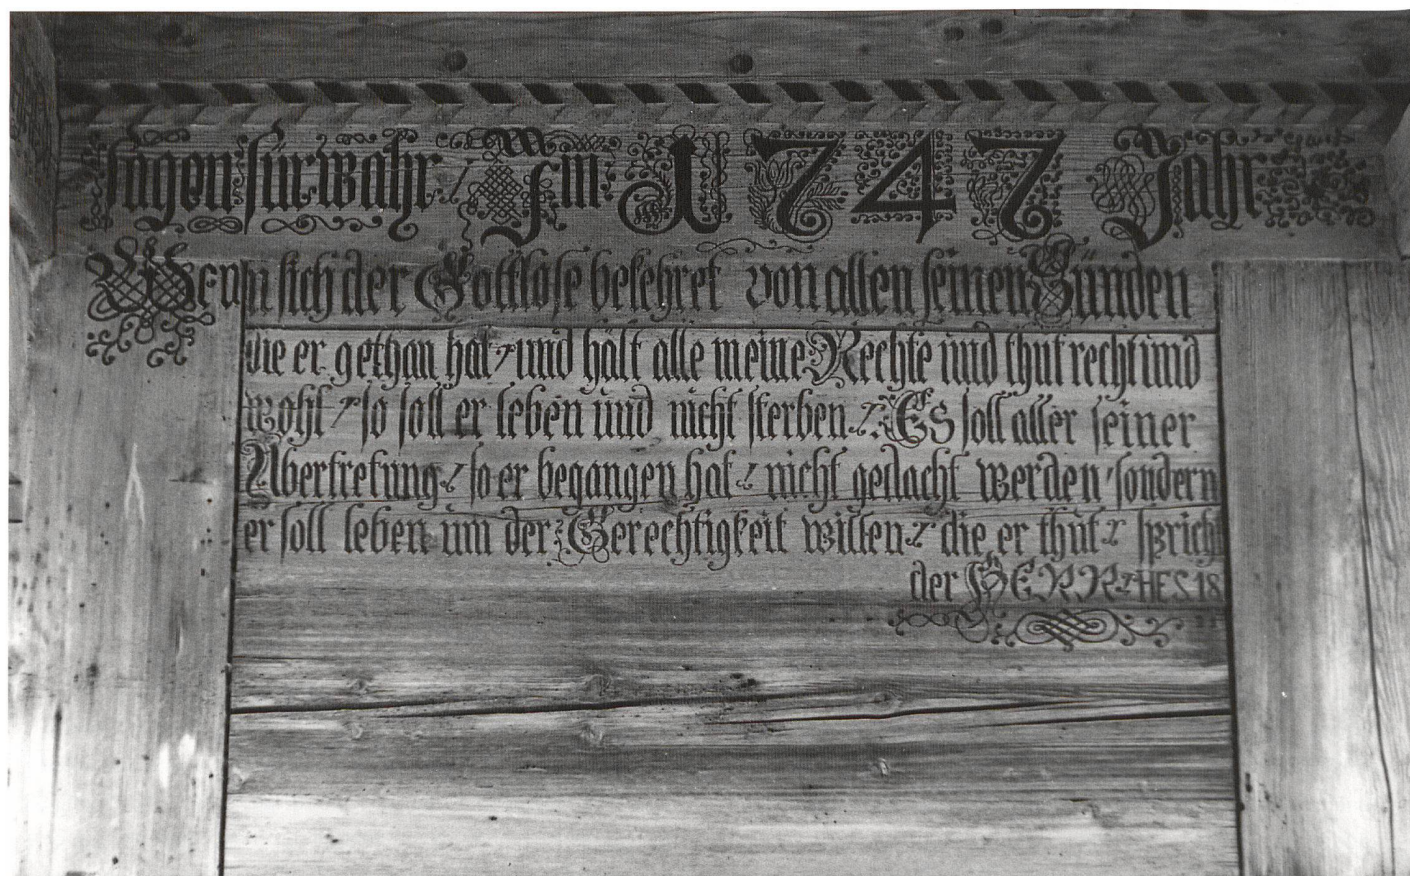 sagen fürwahr / Im 1747 Jahr
Wenn sich der Gottlose bekehret von allen seinen Sünden
die er gethan hat / und hält alle meine Rechte und thut recht und
wohl / so soll er leben und nicht sterben /: Es soll aller seiner
Ubertretung / so er begangen hat / nicht gedacht werden / sondern
er soll leben um der Gerechtigkeit willen / die er thut / spricht
der HERR / HES. 18